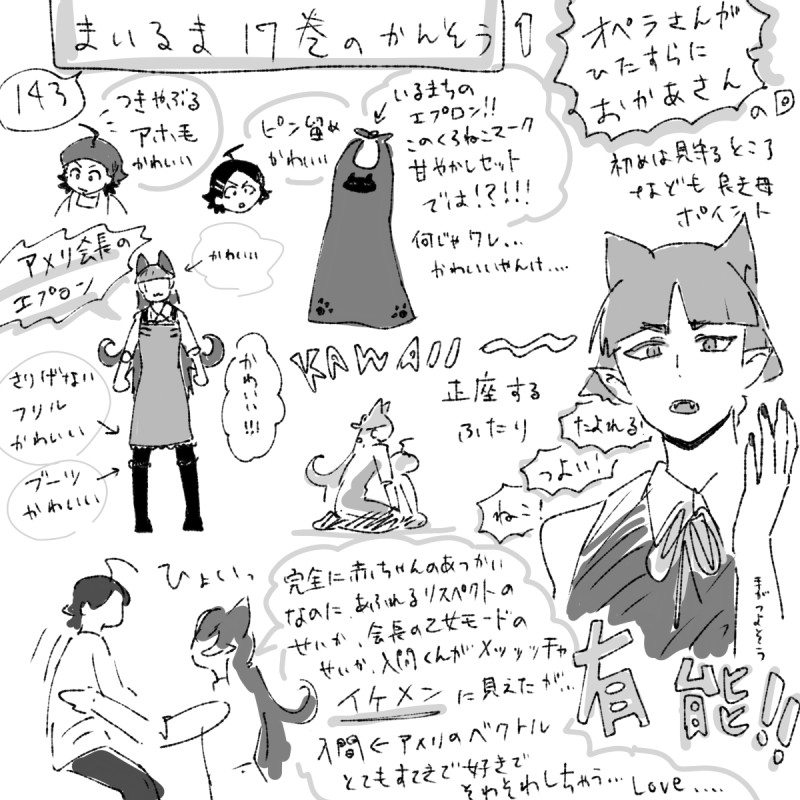 まいるま 17巻のかんそう 1
オペラさんが
ひたすらに
おかあさん
の回
143
つきやぶる
アホ毛
かわいい
ピン留め
かわいい
いるまちの
エプロン!!
このくろねこマーク
甘やかしセット
では!?!!!
何じゃワレ...
かわいいやんけ....
初めは見守るところ
なども良き母
ポイント
アメリ会長の
エプロン
かわいい
さりげない
フリル
かわいい
ブーツ
かわいい
かわいい!!!
KAWAII
正座する
ふたり
たよれる!
つよい!
ねこ!
有能!!
ひょいっ
完全に赤ちゃんのあつかい
なのに、あふれるリスペクトの
せいか、会長の乙女モードの
せいか、入間くんがメッッッチャ
イケメン に見えたが...
入間←アメリのベクトル
とてもすてきで好きで
そわそわしちゃう... Love....